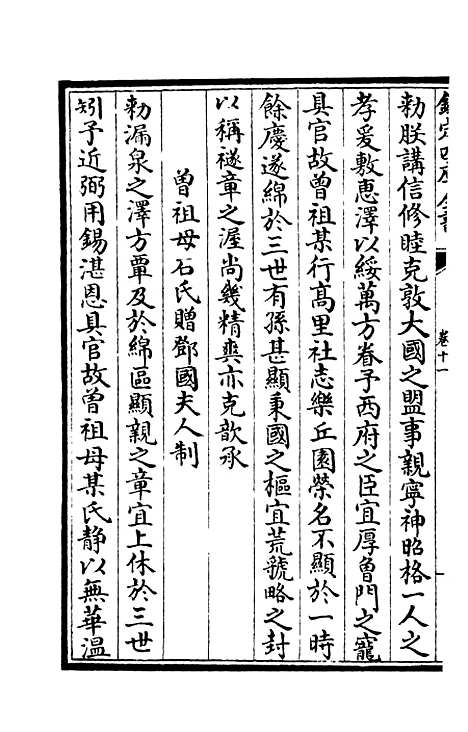 卷十一
勅朕講信修睦克敦大國之盟事親寧神昭格一人之
孝爰敷惠澤以綏萬方眷予西府之臣宜厚魯門之寵
具官故曾祖某行髙里社志樂丘園榮名不顯於一時
餘慶遂綿於三世有孫甚顯秉國之樞宜荒虢略之封
以稱襚章之渥尚幾精爽亦克歆承
曽祖母石氏贈鄧國夫人制
勅漏泉之澤方覃及於綿區顯親之章宜上休於三世
矧予近弼用錫湛恩具官故曽祖母某氏靜以無華温